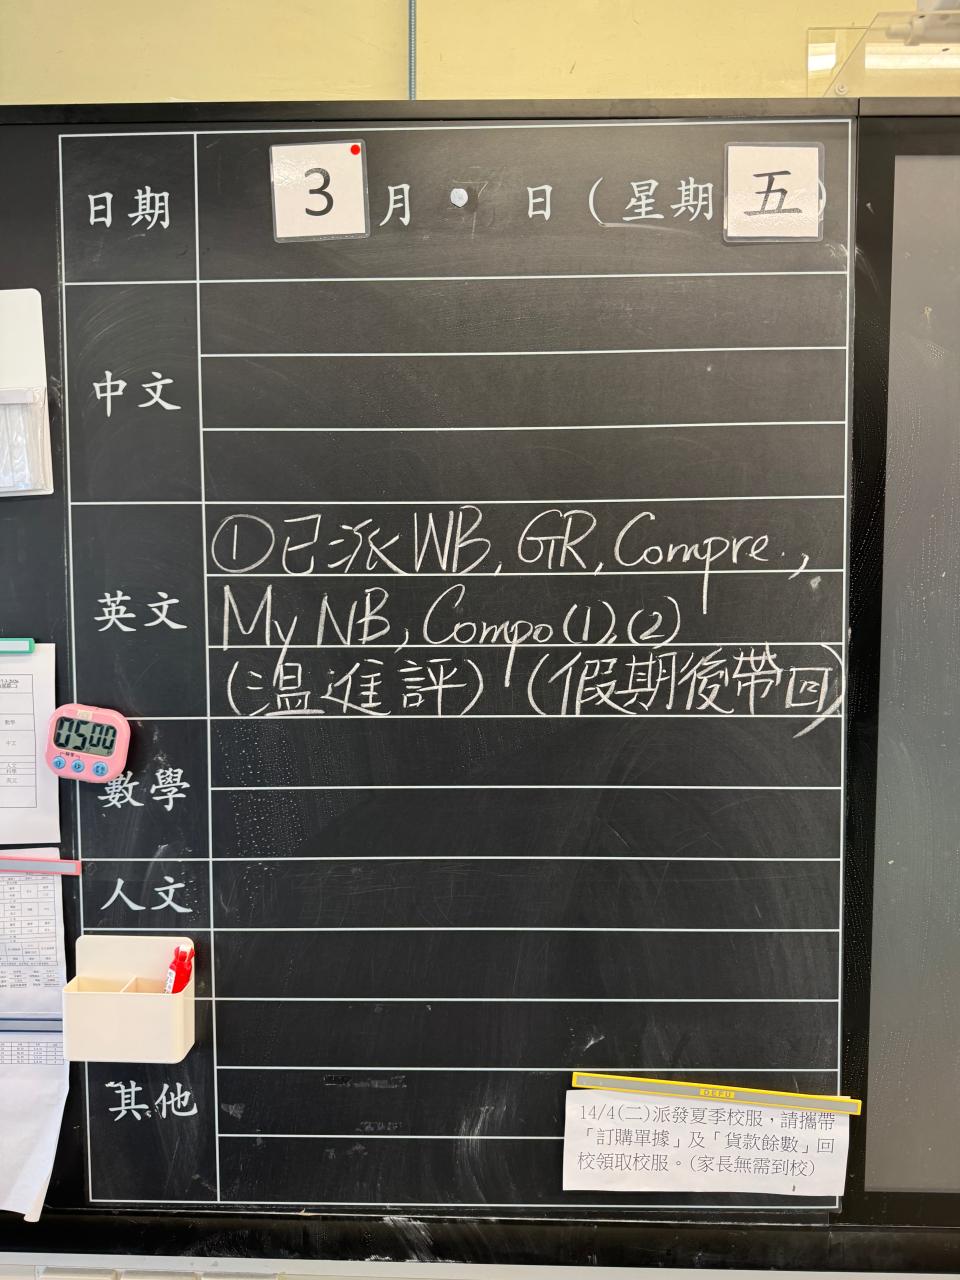 日期 3 月 日 (星期 五)
中文
英文
①已派 WB, GR, Compre.,
My NB, Compo (1), (2)
(溫進評) (假期後帶回)
0500
數學
人文
其他
DEFU
14/4(二)派發夏季校服，請攜帶
「訂購單據」及「貨款餘數」回
校領取校服。(家長無需到校)